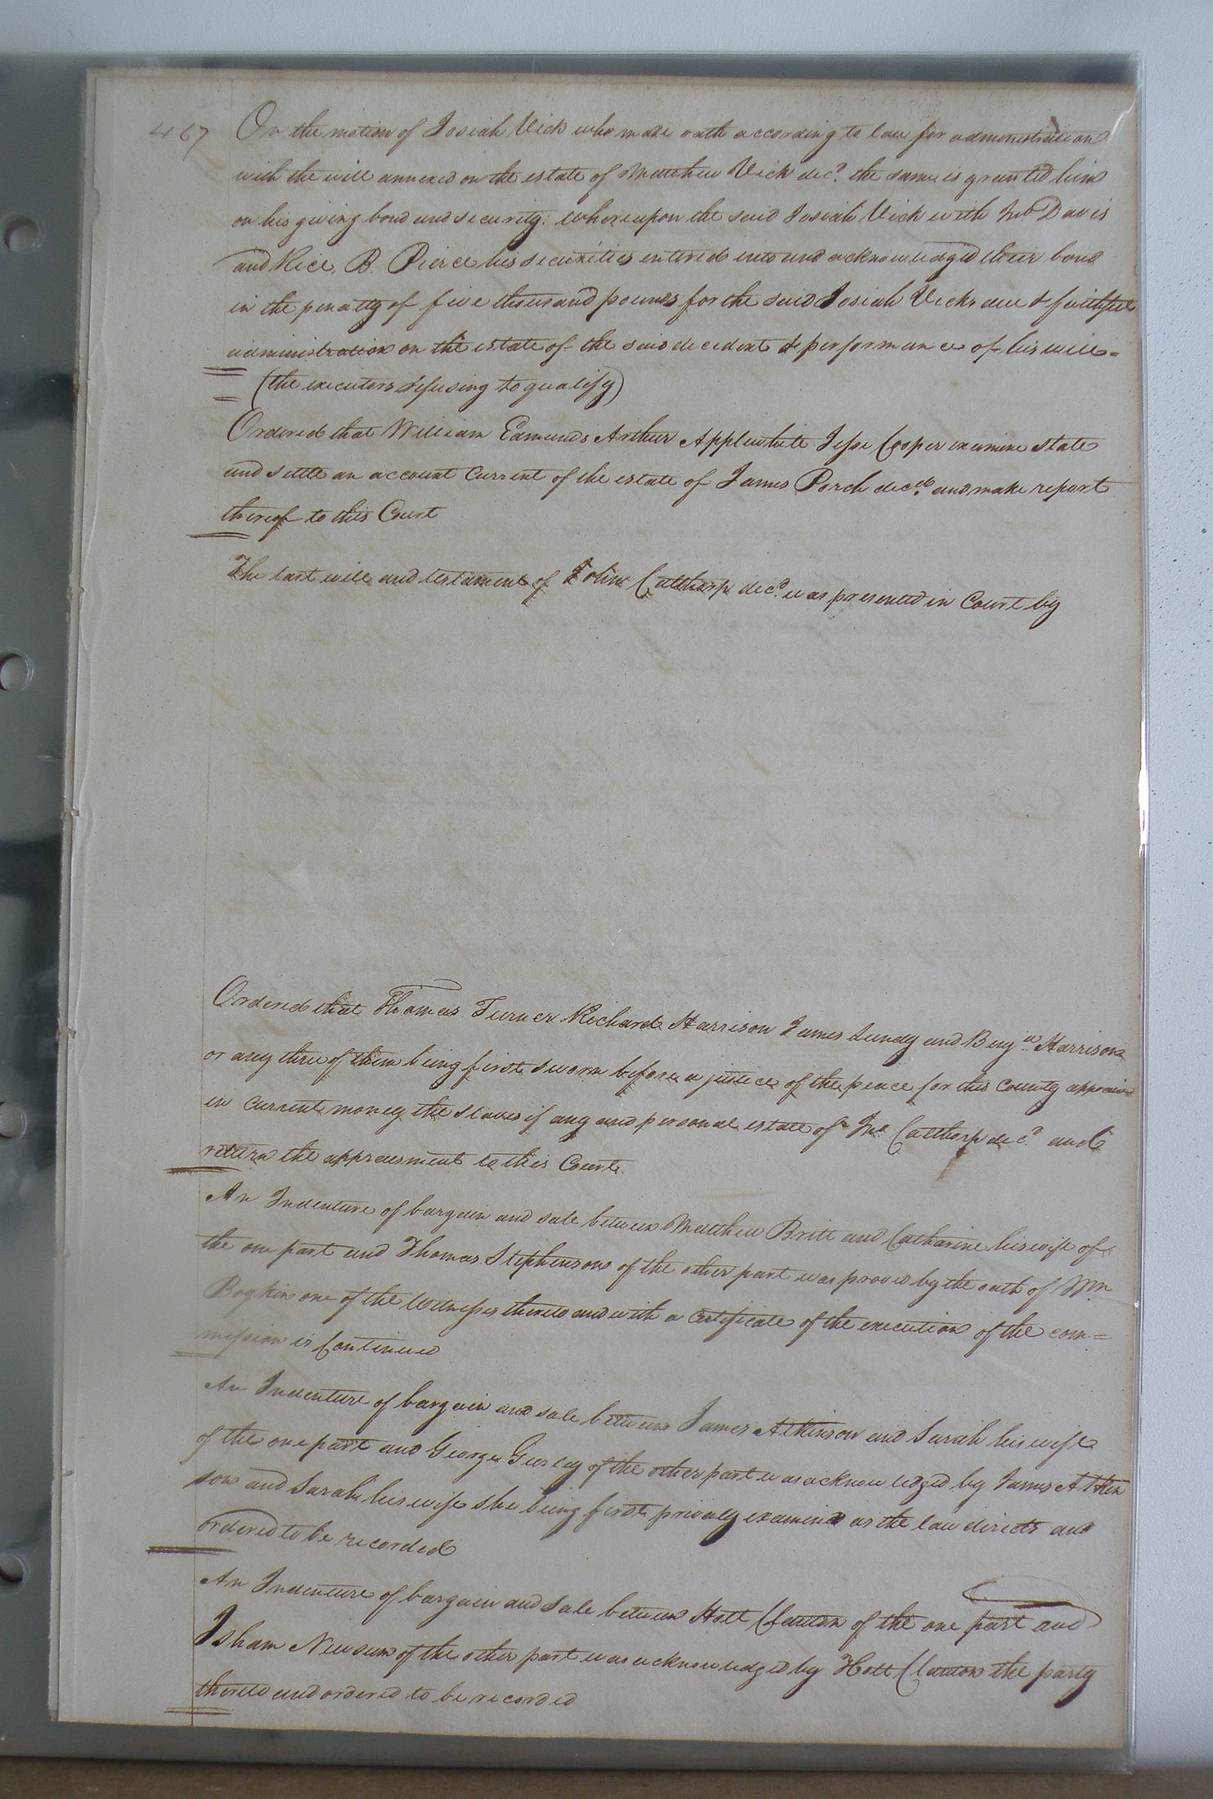 467
On the motion of Josiah Vick who made oath according to law for administration
with the will annexed on the estate of Matthew Vick decd. the same is granted him
on his giving bond and security. whereupon the said Josiah Vick with Jno Davis
and Rice B. Pierce his securities entered into and acknowledged their bond
in the penalty of five thousand pounds for the said Josiah Vicks due & faithful
administration on the estate of the said decedent & performance of his will=
(the executors refusing to qualify)
Ordered that William Edmunds Arthur Applewhite Jesse Cooper examine state
and settle an account Current of the estate of James Porch decd. and make report
thereof to this Court
The last will and testament of John Calthorp decd. was presented in Court by
Ordered that Thomas Turner Richard Harrison James Lundy and Benja. Harrison
or any three of them being first sworn before a justice of the peace for this County appraise
in current money the slaves if any and personal estate of Jno. Calthorp decd. and
return the appraisment to this Court
An Indenture of bargain and sale between Matthew Britt and Catharine his wife of
the one part and Thomas Stephenson of the other part was proved by the oath of Wm
Boykin one of the Witnesses thereto and with a certificate of the execution of the com=
mission is Continued
An Indenture of bargain and sale between James Atkinson and Sarah his wife
of the one part and George Gurley of the other part was acknowledged by James Atkin
son and Sarah his wife she being first privaly examined as the law directs and
ordered to be recorded
An Indenture of bargain and sale between Holt Clauton of the one part and
Isham Newsum of the other part was acknowledged by Holt Clauton the party
thereto and ordered to be recorded